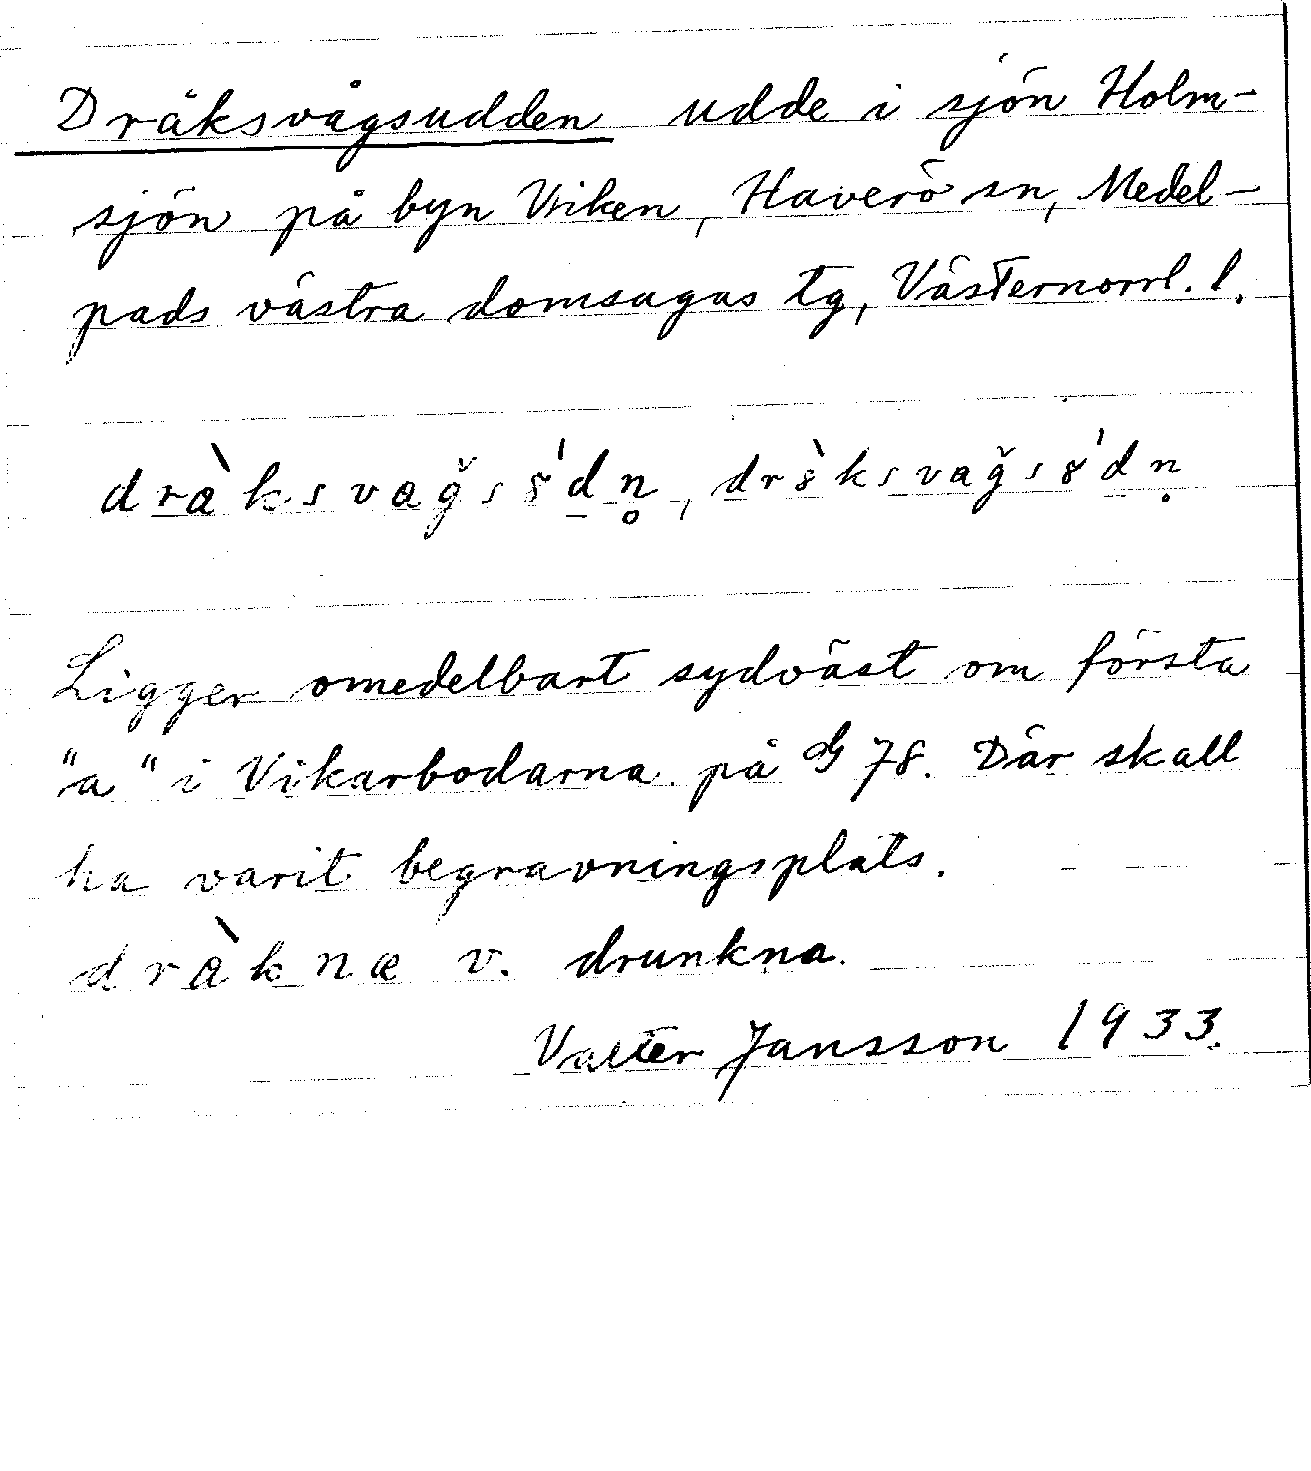 Dräksvågsudden udde i sjön Holm-
sjön på byn Viken, Haverö sn, Medel-
pads västra domsagas tg, Västernorrl. l.
dræ̀ksvaǧs8'dn̥, dr8̀ksvaǧs8'dn̥
Ligger omedelbart sydväst om första
"a" i Vikarbodarna på G 78. Där skall
ha varit begravningsplats.
dræ̀knæ v. drunkna.
Valter Jansson 1933.